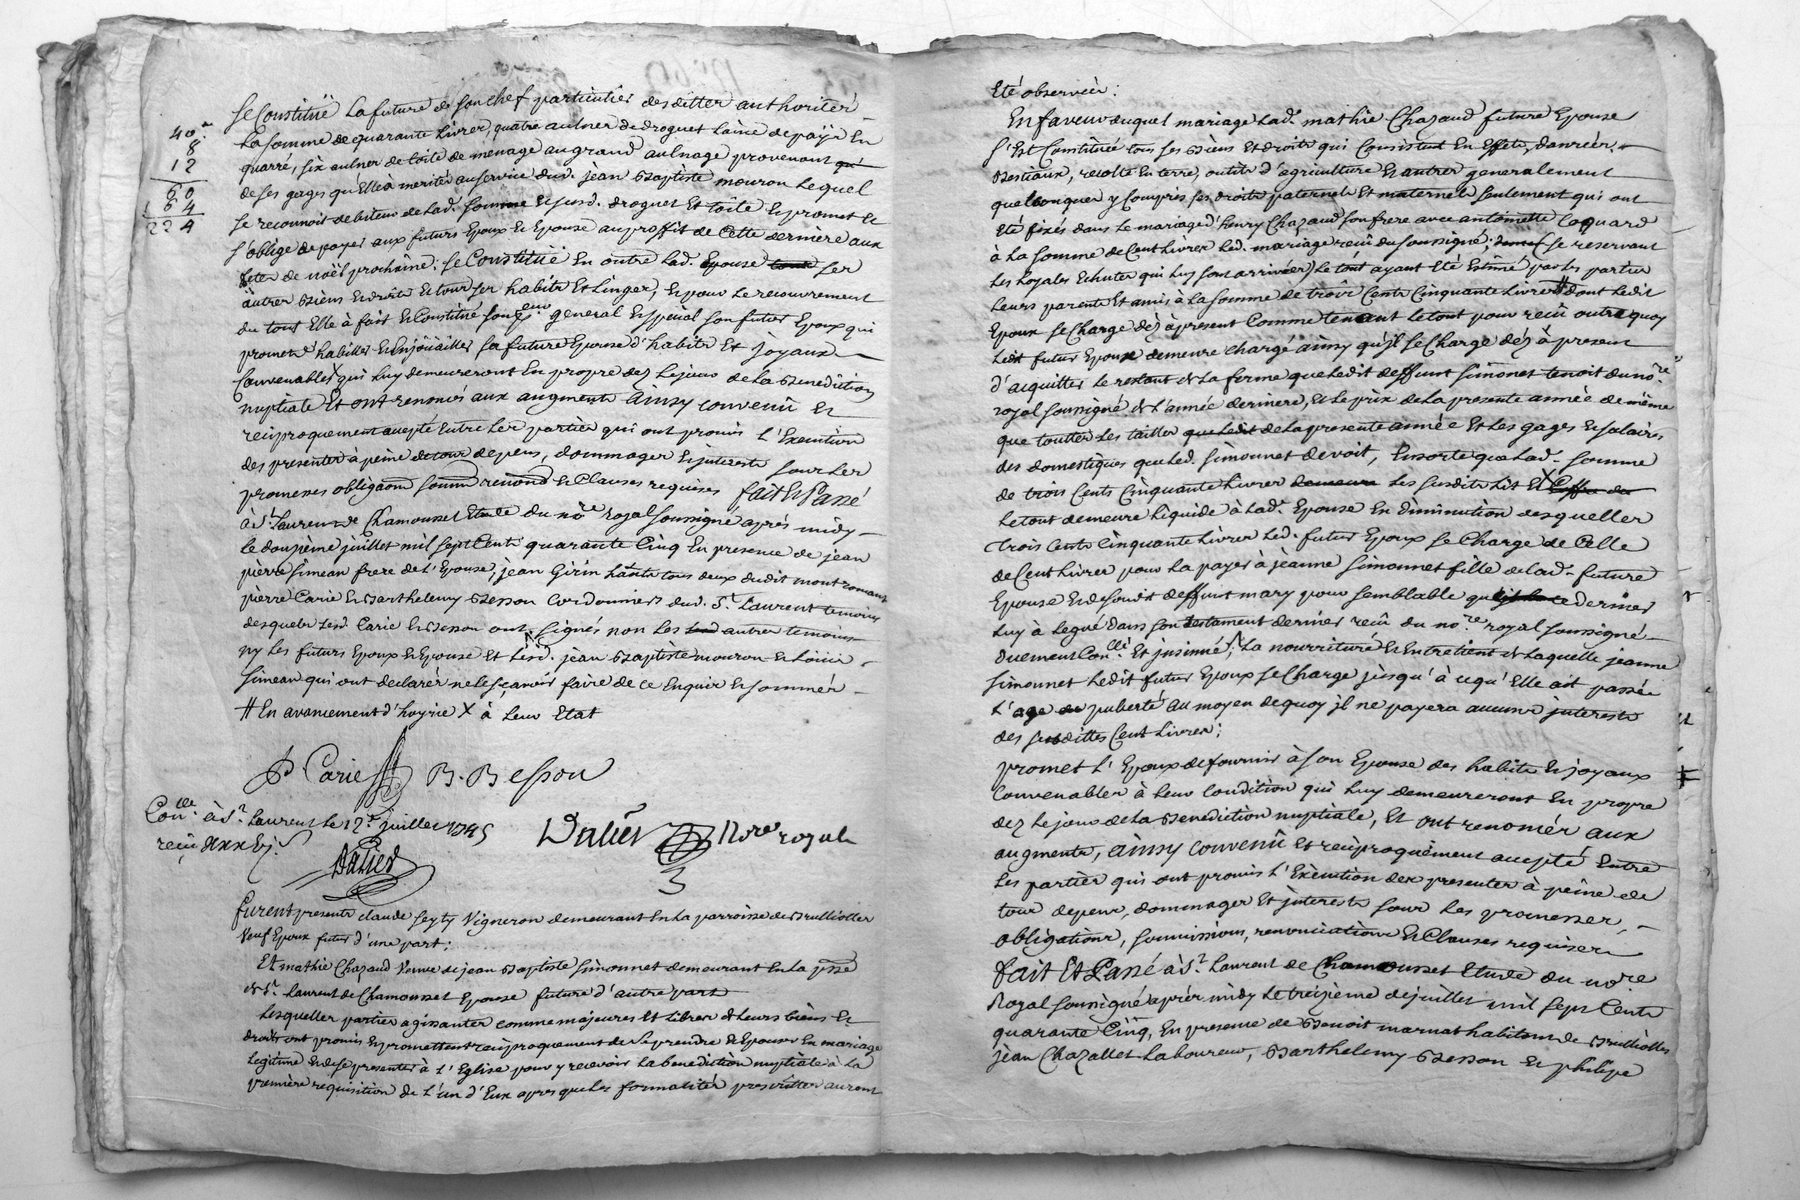 Se Constitüe la future de son chef particulier desdittes authorités
la somme de quarante livres, quatre aulnes de droguet laine de païs en
quarré, six aulnes de toile de menage au grand aulnage provenant
de ses gages qu'Elle à merités au service dud. jean Baptiste mouron lequel
se reconnoit debiteur de lad. somme Et susd. droguet Et toile Et promet Et
s'oblige de payer aux futurs Epoux Et Epouse au proffit de Cette derniere aux
fetes de noël prochaine; se Constitüe En outre lad. Epouse tous ses
autres Biens Et droits Et tous ses habits Et linges, Et pour le recouvrement
du tout Elle à fait Et Constitué son general Et special son futur Epoux qui
promet habiller Et Enjoüailler sa future Epouse d'habits Et joyaux
Convenables X qui luy demeureront En propre dez le jour de la Benediction
nuptiale Et ont renoncés aux augments ainsy convenü Et
reciproquement accepté Entre les parties qui ont promis l'Execution
des presentes à peine de tous depens, dommages Et interests sous les
promesses obligaons soumons renonons Et Clauses requises fait Et Passé
à St. Laurent de Chamousset Etude du nore royal soussigné aprés midy
le douzième juillet mil sept Cents quarante Cinq En presence de jean
pierre simean frere de l'Epouse, jean Girin tous deux dudit montromant
pierre Carie Et Barthelemy Besson Cordonniers dud. St. Laurent temoins
desquels lesd. Carie Et Besson ont signés non les autres temoins
ny les futurs Epoux Et Epouse Et led. jean Baptiste mouron Et
simean qui ont declarés ne le sçavoir faire de ce Enquis Et sommés
# En avancement d'hoyrie X à leur Etat
40
8
12
60
164
224
P Carie B. Besson
Conllé à St. Laurent le 12e juillet 1745
reçu
Dalier
Dalier Nore royal
furent presents claude seyty Vigneron demeurant En la parroisse de Brullioles
Veuf Epoux futur d'une part;
Et mathie Chazaud Veuve de jean Baptiste simonnet demeurant En la psse
de St. Laurent de Chamousset Epouse future d'autre part
Lesquelles parties agissantes comme majeures Et libres de leurs biens Et
droits ont promis Et promettent reciproquement de se prendre Et Epouser En mariage
legitime Et de se presenter à l'Eglise pour y recevoir la benediction nuptiale à la
premiere requisition de l'un d'Eux apres que les formalités prescrittes auront
Eté observées:
En faveur duquel mariage lad. mathie Chazaud future Epouse
s'Est Constituée tous ses Biens Et droits qui Consistent En Effets, danrées,
Bestiaux, recolte En terre, outils d'agriculture Et autres generalement
quelconques y Compris ses droits paternels Et maternels seulement qui ont
Eté fixés dans le mariage d'henry Chazaud son frere avec antoinette Coquard
à la somme de Cent livres led. mariage reçu du soussigné; (se reservant
les loyales Echutes qui luy sont arrivées) le tout ayant Eté Estimé par les parties
leurs parents Et amis à la somme de trois Cents Cinquante livres # dont ledit
Epoux se Charge dez à present Comme tenant le tout pour reçu outre quoy
ledit futur Epoux demeure chargé ainsy qu'il se Charge dez à present
d'acquitter le restant de la ferme que ledit deffunt simonet tenoit du nore
royal soussigné de l'année derniere, Et le prix de la presente année de même
que touttes les tailles de la presente année Et les gages Et salaires
des domestiques que led. simonnet devoit, Ensorte que lad. somme
de trois Cents Cinquante livres les susdits lit Et X
le tout demeure liquide à lad. Epouse En diminution desquelles
trois Cents Cinquante livres led. futur Epoux se Charge de Celle
de Cent livres pour la payer à jeanne simonnet fille de lad. future
Epouse Et de soudit deffunt mary pour semblable que ce dernier
luy à legué dans son testament dernier reçu du nore royal soussigné
duement Conllé Et insinué; la nourriture Et Entretient de laquelle jeanne
simonnet ledit futur Epoux se Charge jusqu'à ce qu'Elle ait passée
l'age de puberté au moyen de quoy il ne payera aucuns interests
des susdittes Cent livres;
promet l'Epoux de fournir à son Epouse des habits Et joyaux
Convenables à leur Condition qui luy demeureront En propre
dez le jour de la Benediction nuptiale, Et ont renoncés aux
augments, ainsy convenü Et reciproquement accepté Entre
les parties qui ont promis l'Exécution des presentes à peine de
tous depens, dommages Et interests sous les promesses,
obligations, soumissions, renonciations Et Clauses requises
fait Et Passé à St. Laurent de Chamousset Etude du nore
Royal soussigné après midy le treizième de juillet mil sept Cents
quarante Cinq, En presence de Benoit marnat habitant de Brullioles
jean Chazallet laboureur, Barthelemy Besson Et philipe